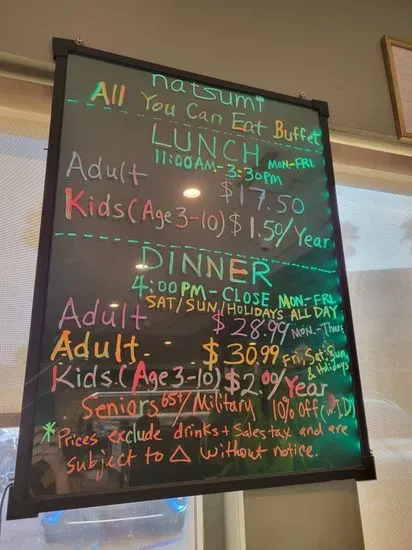 natsumi
All You Can Eat Buffet
LUNCH MON-FRI.
11:00AM-3:30PM
Adult $17.50
Kids (Age 3-10) $1.50/Year
DINNER
4:00PM-CLOSE MON-FRI.
SAT/SUN/HOLIDAYS ALL DAY
Adult $28.99 MON.-Thurs
Adult $30.99 Fri. Sat. Sun & Holidays
Kids. (Age 3-10) $2.00/Year
Seniors 65+/Military 10% Off (w.ID)
*Prices exclude drinks + Sales tax and are
subject to △ without notice.